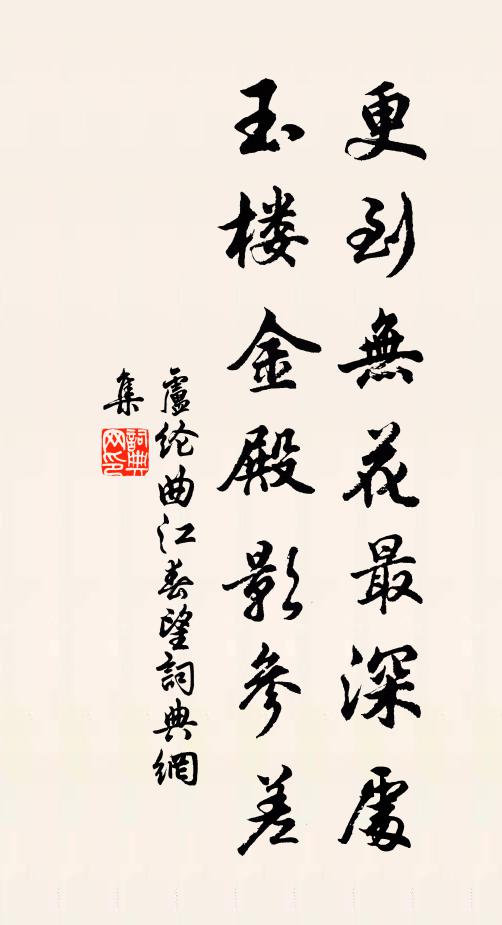 更到無花最深處
玉楼金殿影參差
盧纶曲江春望詞典網
集
詞典网印